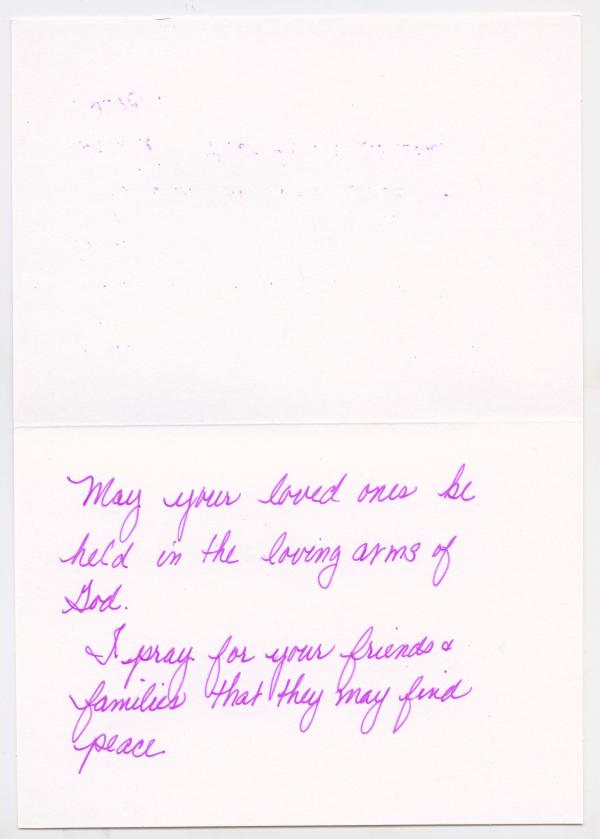 May your loved ones be
held in the loving arms of
God.
I pray for your friends &
families that they may find
peace